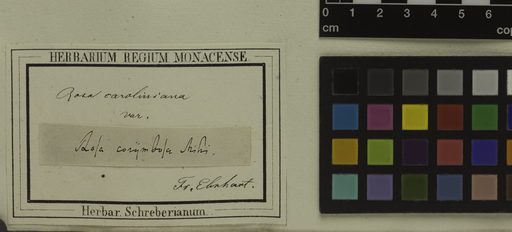 HERBARIUM REGIUM MONACENSE
Rosa caroliniana
var.
Rosa corymbosa
Fr. Ehrhart.
Herbar. Schreberianum.
0 1 2 3 4 5 6
cm
cop